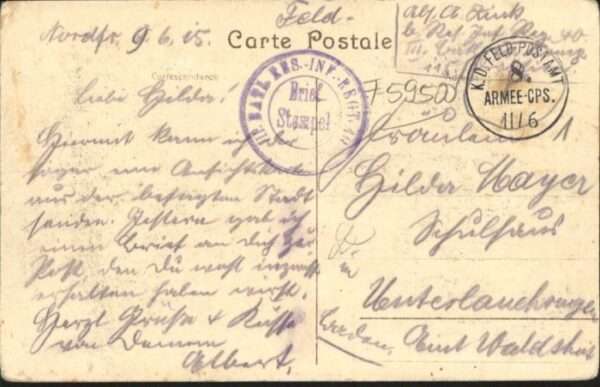 Feld-
Carte Postale
Correspondance
Nordfr. 9.6.15.
Liebe Hilda!
Hiermit kann ich dir
sogar eine Ansichtskarte
aus der besagten Stadt
senden. Gestern gab ich
einen Brief an dich zur
Post, den du wohl inzwisch
erhalten haben wirst.
Herzl Grüße & Küsse
von Deinem
Albert.
III. BATL. RES.-INF.-REGT. 40
Brief
Stempel
Abs. A. Zink
b. Res. Inf. Reg. 40
III.
75950
K.D. FELD-POSTAMT
8.
ARMEE-CPS.
11/6
Fräulein
Hilda Mayer
Schulhaus
in
Unterlauchringen
Baden, Amt Waldshut